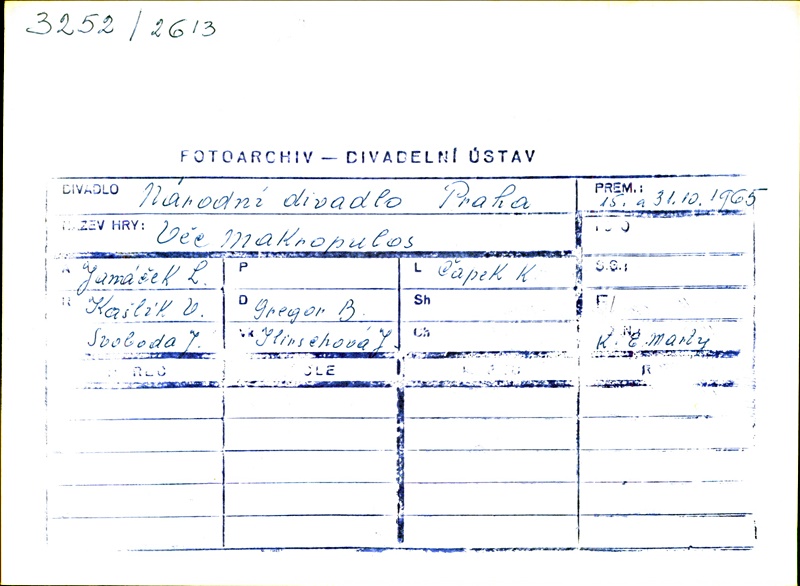 3252/2613
FOTOARCHIV — DIVADELNÍ ÚSTAV
DIVADLO Národní divadlo Praha PREM.: 15. a 31.10.1965
NÁZEV HRY: Věc Makropulos
Janáček L. P L Čapek K. S.G.:
R Kašlík V. D Gregor B. Sh
Svoboda J. Vk Hirschová J. Ch